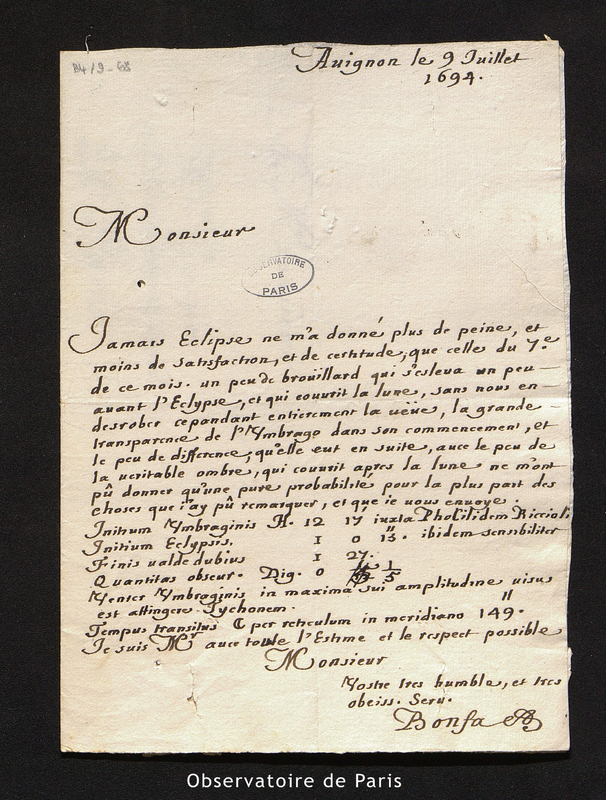 B4/9-68
Auignon le 9 Juillet
1694.
Monsieur
OBSERVATOIRE
DE
PARIS
Jamais Eclipse ne m'a donné plus de peine, et
moins de satisfaction, et de certitude, que celle du 7.e
de ce mois. un peu de broüillard qui s'esleua un peu
auant l'Eclypse, et qui couurit la lune, sans nous en-
desrober cependant entierement la ueüe, la grande
transparence de l'Ymbrago dans son commencement, et
le peu de difference, qu'elle eut en suite, auec le peu de
la ueritable ombre, qui couurit apres la lune ne m'ont
pû donner qu'une pure probabilité pour la plus part des
choses que i'ay pû remarquer, et que ie uous enuoye.
Initium Ymbraginis H. 12 17 iuxta Phocilidem Riccioli
Initium Eclypsis. 1 0 13. ibidem sensibiliter
Finis ualde dubius 1 27.
Quantitas obscur. Dig. 0 1/5
Venter Ymbraginis in maxima sui amplitudine uisus
est attingere Tychonem.
Tempus transitus ☾ per reticulum in meridiano 149."
Je suis Mr auec toute l'Estime et le respect possible
Monsieur
Vostre tres humble, et tres
obeiss. Seru.
Bonfa
Observatoire de Paris